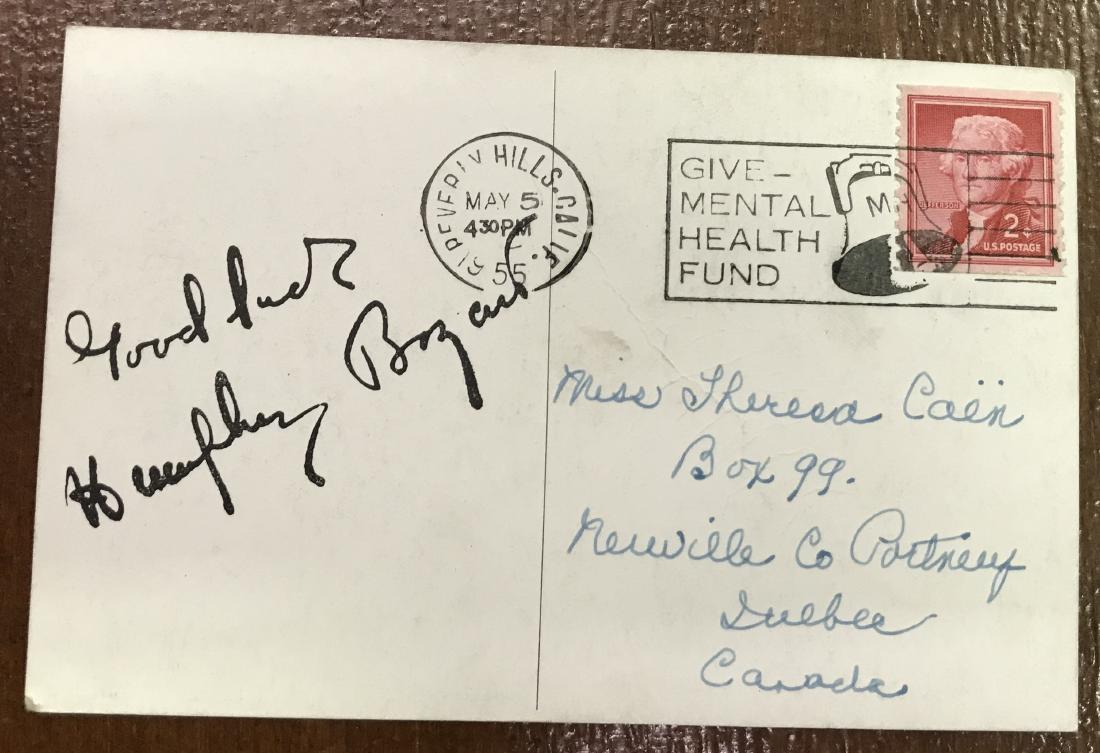 Good luck
Humphrey Bogart
BEVERLY HILLS, CALIF.
MAY 5
4 30 PM
55
GIVE—
MENTAL
HEALTH
FUND
JEFFERSON
2¢
U.S. POSTAGE
Miss Theresa Caën
Box 99.
Neuville Co Portneuf
Quebec
Canada